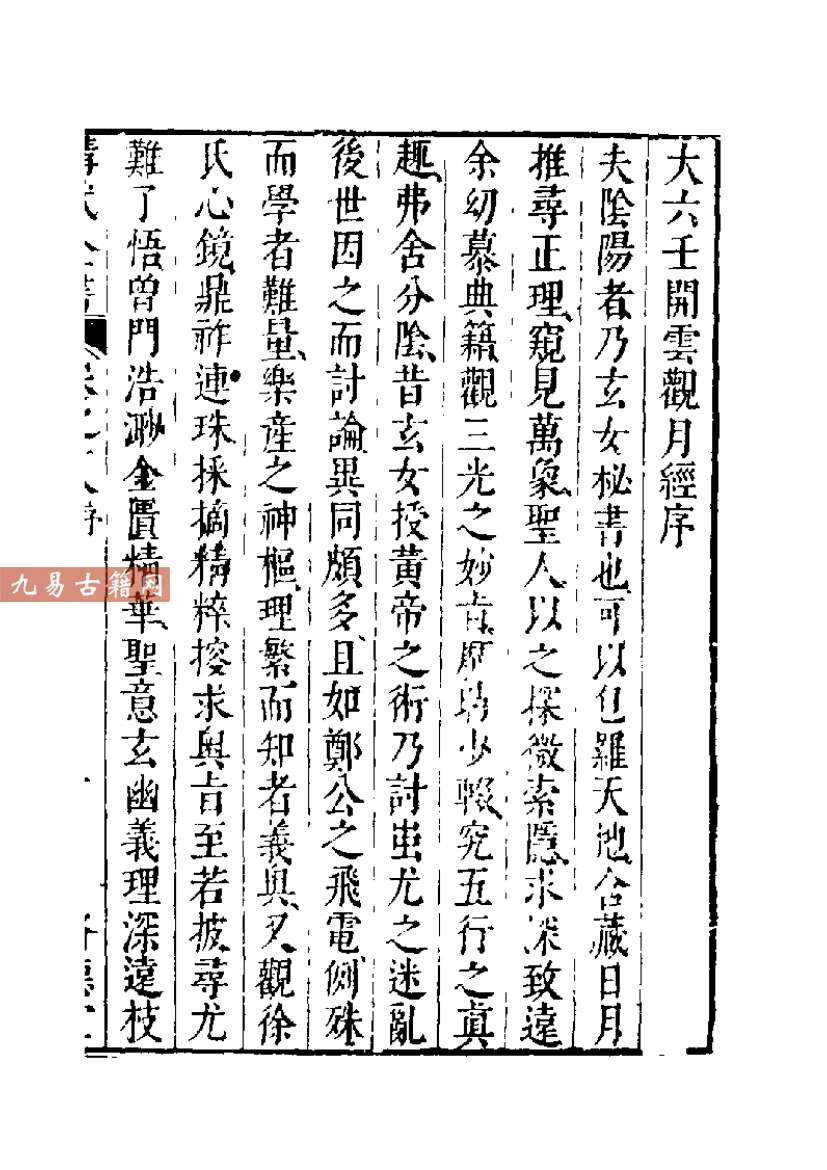 大六壬開雲觀月經序
夫陰陽者乃玄女秘書也可以包羅天地含藏日月
推尋正理窺見萬象聖人以之探微索隱求深致遠
余幼慕典籍觀三光之妙旨少輟究五行之真
趣弗舍分陰昔玄女授黃帝之術乃討蚩尤之迷亂
後世因之而討論異同頗多且如鄭公之飛電側珠
而學者難量樂産之神樞理繁而知者義奥又觀徐
氏心鏡鼎祚連珠採摘精粹搜求奥旨至若披尋尤
難了悟曽門浩渺金匱精華聖意玄幽義理深遠枝
九易古籍网